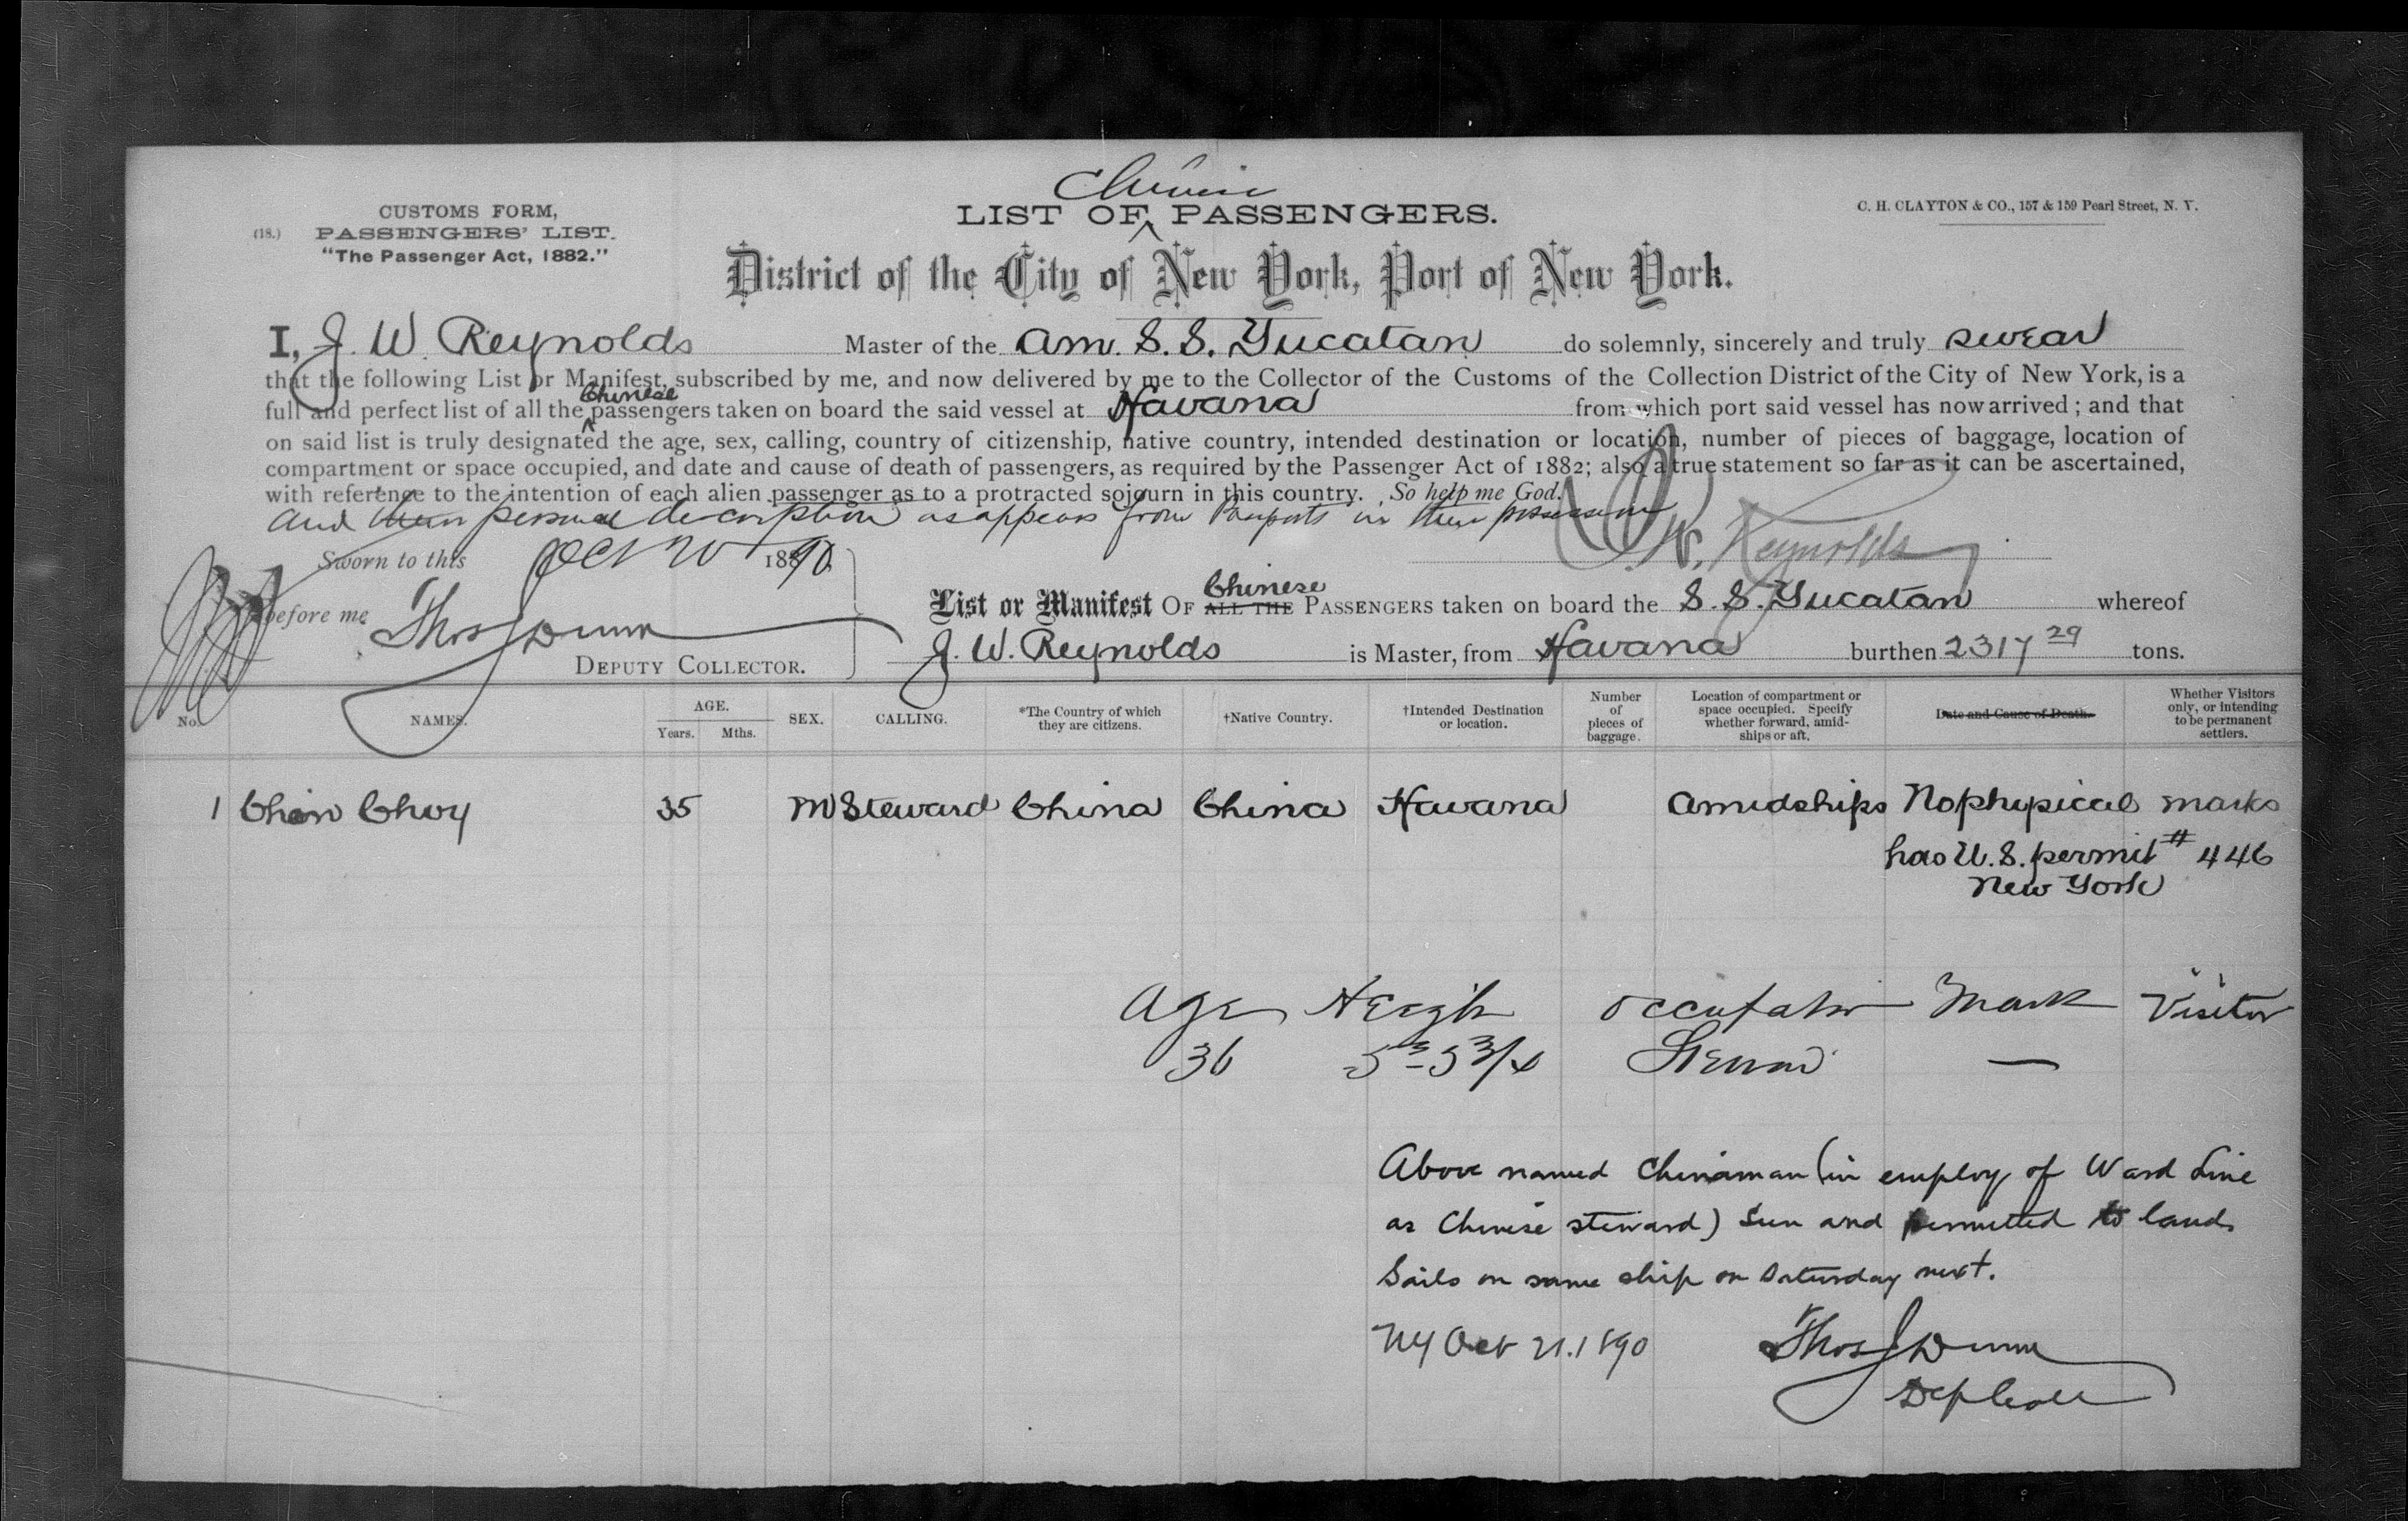 Chinese
LIST OF ^ PASSENGERS.
CUSTOMS FORM,
(18.) PASSENGERS' LIST.
"The Passenger Act, 1882."
C. H. CLAYTON & CO., 157 & 159 Pearl Street, N. Y.
District of the City of New York, Port of New York.
I, J. W. Reynolds Master of the Am. S. S. Yucatan do solemnly, sincerely and truly swear
that the following List or Manifest, subscribed by me, and now delivered by me to the Collector of the Customs of the Collection District of the City of New York, is a
Chinese
full and perfect list of all the ^ passengers taken on board the said vessel at Havana from which port said vessel has now arrived; and that
on said list is truly designated the age, sex, calling, country of citizenship, native country, intended destination or location, number of pieces of baggage, location of
compartment or space occupied, and date and cause of death of passengers, as required by the Passenger Act of 1882; also a true statement so far as it can be ascertained,
with reference to the intention of each alien passenger as to a protracted sojourn in this country. So help me God.
and their personal description as appears from Passports in their possession
J. W. Reynolds
Sworn to this Oct 20 1890
before me Thos J Dunn
DEPUTY COLLECTOR.
Chinese
List or Manifest OF ALL THE PASSENGERS taken on board the S. S. Yucatan whereof
J. W. Reynolds is Master, from Havana burthen 2317 29 tons.
No. NAMES. AGE. Years. Mths. SEX. CALLING. *The Country of which they are citizens. †Native Country. †Intended Destination or location. Number of pieces of baggage. Location of compartment or space occupied. Specify whether forward, amidships or aft. Date and Cause of Death. Whether Visitors only, or intending to be permanent settlers.
1 Chin Choy 35 M Steward China China Havana Amidships No physical marks
has U. S. permit # 446
New York
Age Heigh Occupation Mark Visitor
36 5-5 3/4 Steward —
Above named Chinaman (in employ of Ward Line
as Chinese steward) seen and permitted to land.
Sails on same ship on Saturday next.
NY Oct 21. 1890 Thos J Dunn
Dep Coll